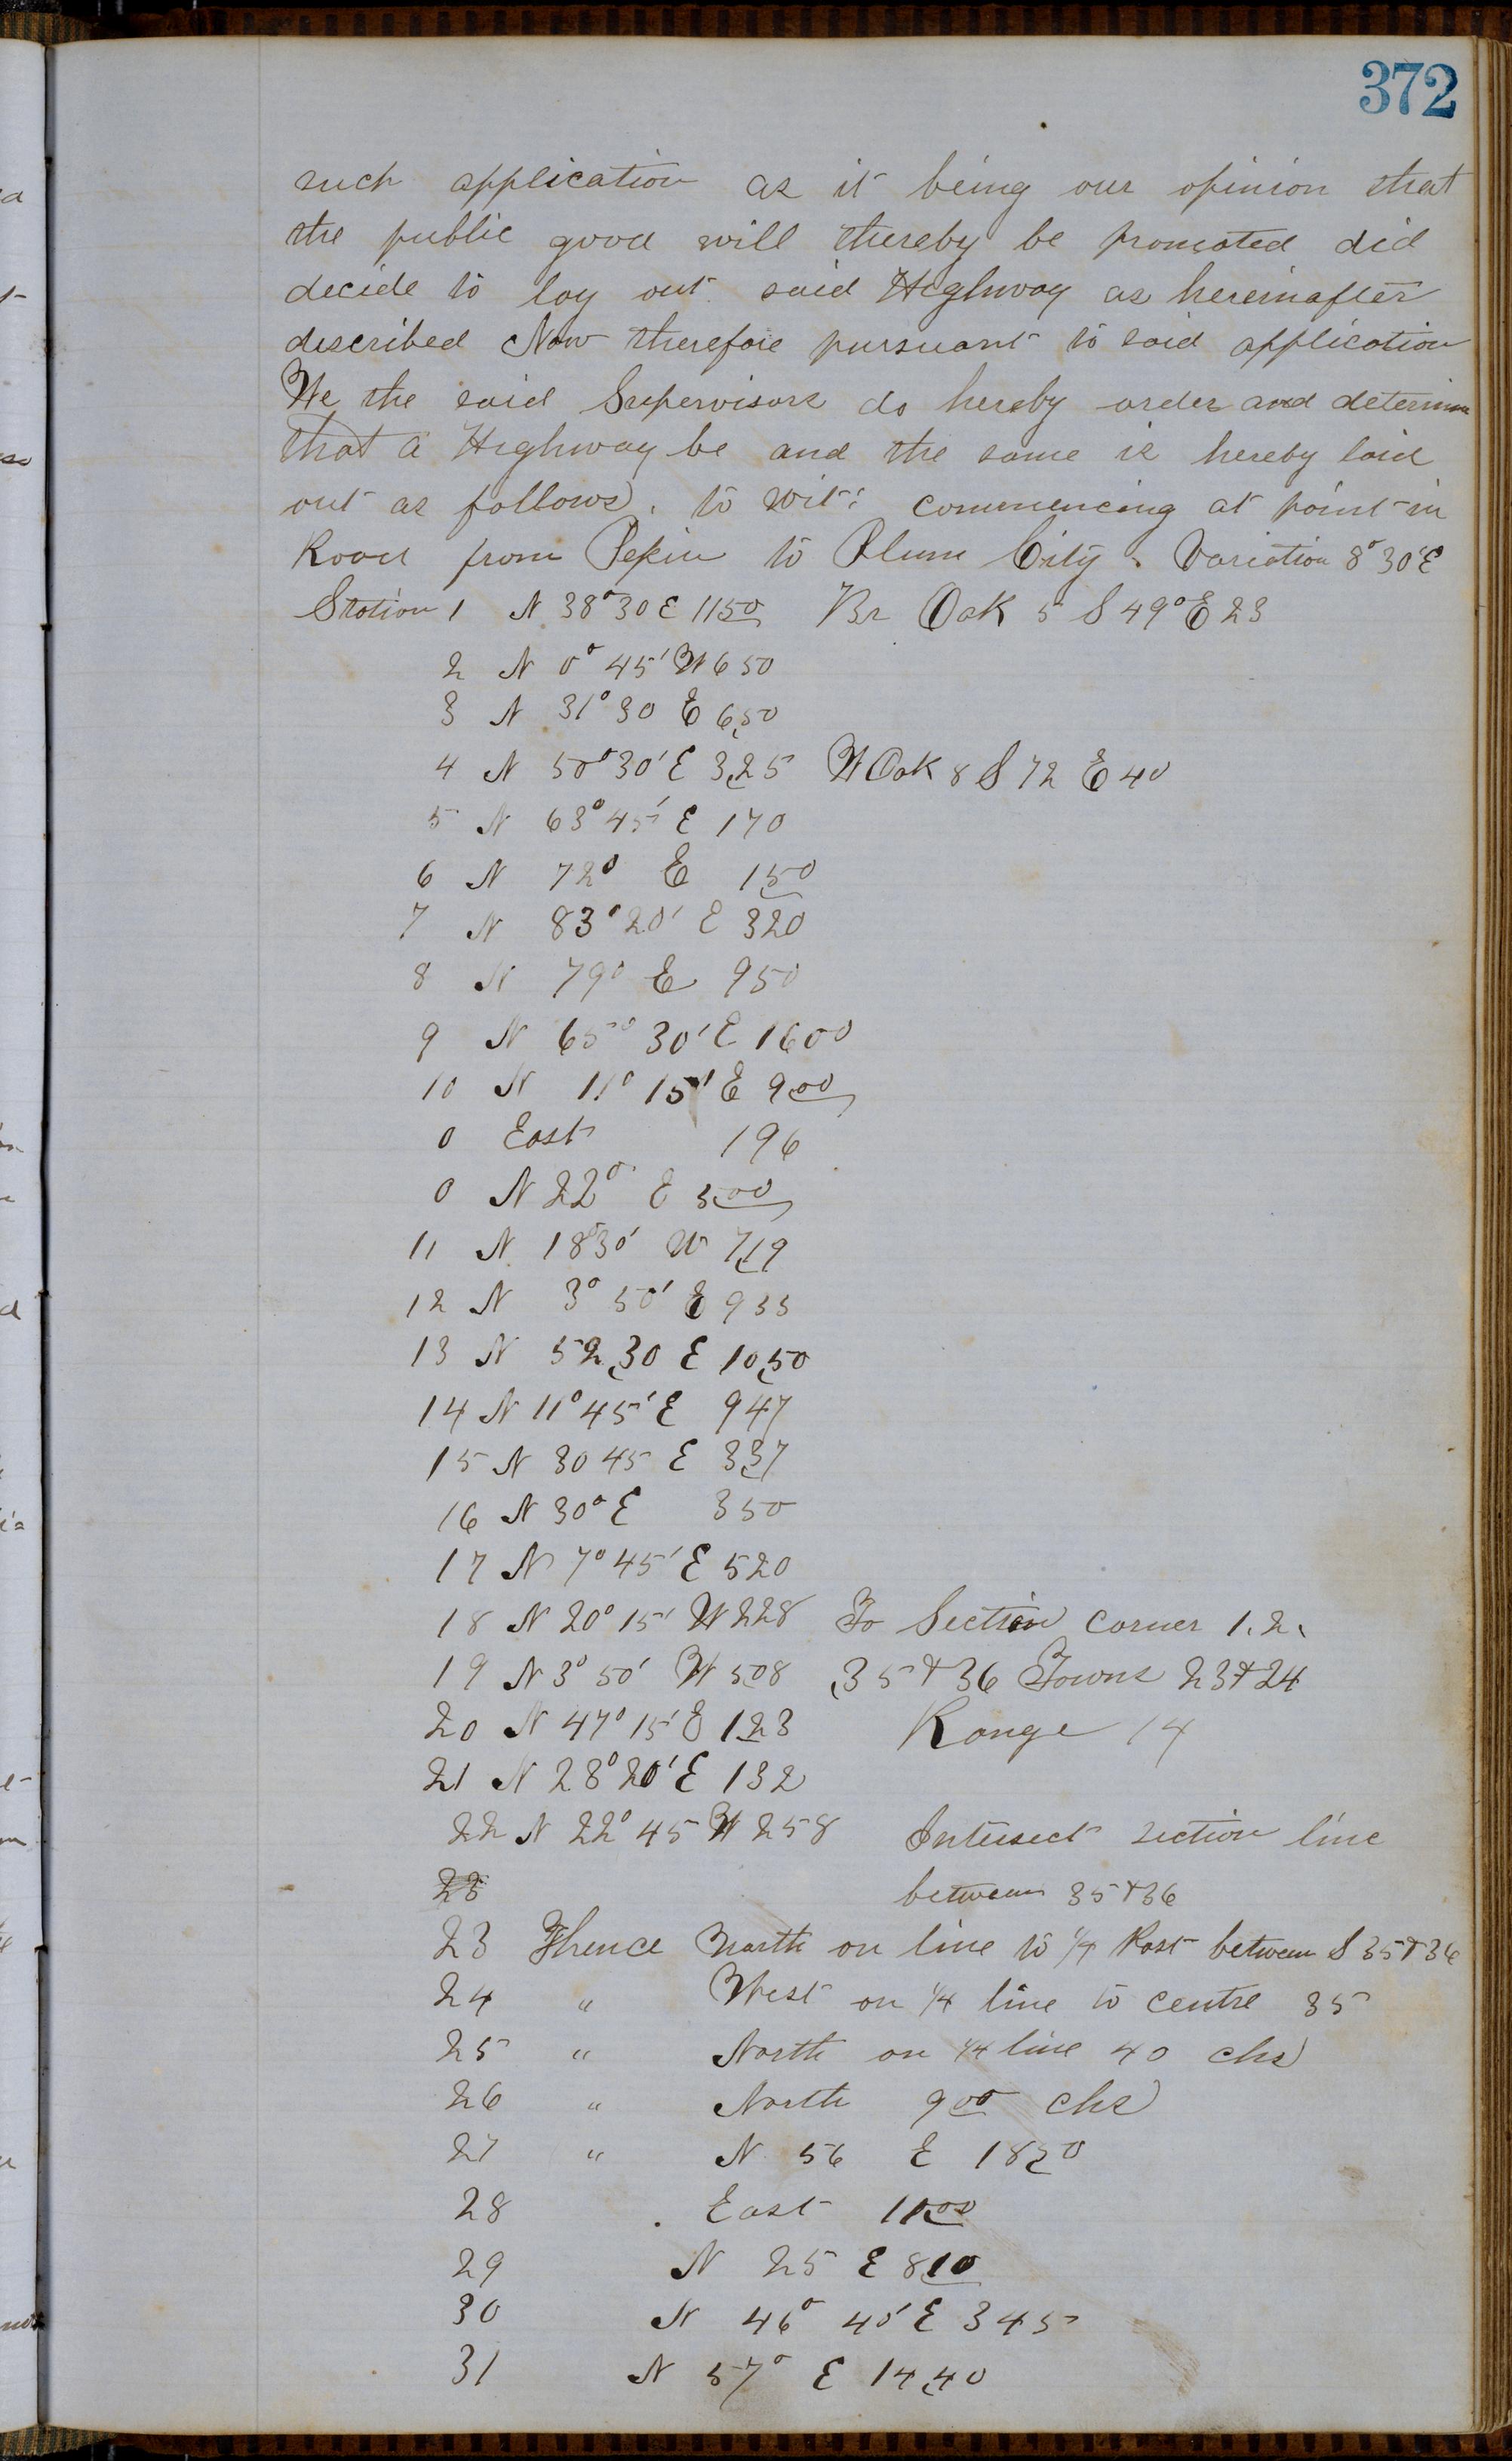 372
such application as it being our opinion that
the public good will thereby be promoted did
decide to lay out said Highway as hereinafter
described Now therefore pursuant to said application
We the said Supervisors do hereby order and determine
that a Highway be and the same is hereby laid
out as follows, to wit: commencing at point in
Road from Pepin to Plum City. Variation 8° 30' E
Station 1 N 38° 30 E 1150 Br Oak 5 S 49° E 23
2 N 0° 45' W 650
3 N 31° 30 E 650
4 N 50° 30' E 325 W Oak 8 S 72 E 40
5 N 63° 45' E 170
6 N 72° E 150
7 N 83° 20' E 320
8 N 79° E 950
9 N 65° 30' E 1600
10 N 11° 15' E 900
0 East 196
0 N 22° E 500
11 N 18° 30' W 719
12 N 3° 50' E 933
13 N 52 30 E 1050
14 N 11° 45' E 947
15 N 30 45 E 337
16 N 30° E 350
17 N 7° 45' E 520
18 N 20° 15' W 228 To Section corner 1. 2.
19 N 3° 50' W 508 35 & 36 Towns 23 & 24
20 N 47° 15' E 123 Range 14
21 N 28° 20' E 132
22 N 22° 45 W 258 Intersect section line
23 between 35 & 36
23 Thence North on line to 1/4 Post between S 35 & 36
24 " West on 1/4 line to centre 35
25 " North on 1/4 line 40 chs
26 " North 900 chs
27 " N 56 E 1850
28 . East 1100
29 N 25 E 810
30 N 46° 45' E 345
31 N 57° E 1440